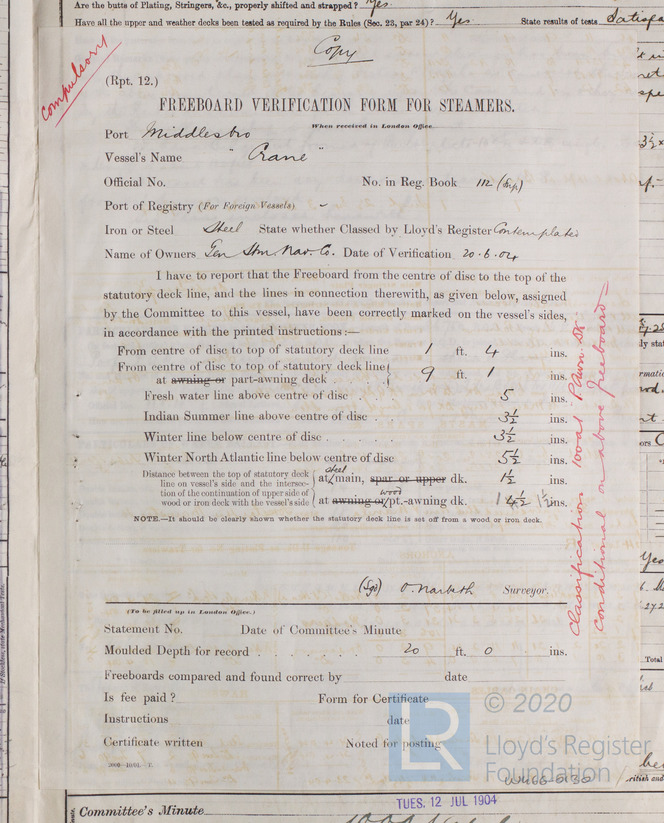 Are the butts of Plating, Stringers, &c., properly shifted and strapped? Yes
Have all the upper and weather decks been tested as required by the Rules (Sec. 23, par 24)? Yes State results of tests
Copy
compulsory
(Rpt. 12.)
FREEBOARD VERIFICATION FORM FOR STEAMERS.
When received in London Office
Port Middlesbro
Vessel's Name "Crane"
Official No. No. in Reg. Book 112 (Sup)
Port of Registry (For Foreign Vessels) -
Iron or Steel Steel State whether Classed by Lloyd's Register Contemplated
Name of Owners Gen Stm. Nav. Co. Date of Verification 20.6.04
I have to report that the Freeboard from the centre of disc to the top of the
statutory deck line, and the lines in connection therewith, as given below, assigned
by the Committee to this vessel, have been correctly marked on the vessel's sides,
in accordance with the printed instructions:—
From centre of disc to top of statutory deck line 1 ft. 4 ins.
From centre of disc to top of statutory deck line
at awning or part-awning deck 9 ft. 1 ins.
Fresh water line above centre of disc 5 ins.
Indian Summer line above centre of disc 3½ ins.
Winter line below centre of disc 3½ ins.
Winter North Atlantic line below centre of disc 5½ ins.
Distance between the top of statutory deck
line on vessel's side and the intersec-
tion of the continuation of upper side of
wood or iron deck with the vessel's side
at steel main, spar or upper dk. 1½ ins.
at awning or wood pt.-awning dk. 1½ ins.
NOTE.—It should be clearly shown whether the statutory deck line is set off from a wood or iron deck.
(Sgd) O. Narbeth Surveyor.
Classification 100A1 Pt Awn Dk.
conditional on above freeboard
(To be filled up in London Office.)
Statement No. Date of Committee's Minute
Moulded Depth for record 20 ft. 0 ins.
Freeboards compared and found correct by date
Is fee paid? Form for Certificate
Instructions date
Certificate written Noted for posting
LR
© 2020
Lloyd's Register
Foundation
W466-0130
TUES. 12 JUL 1904
Committee's Minute